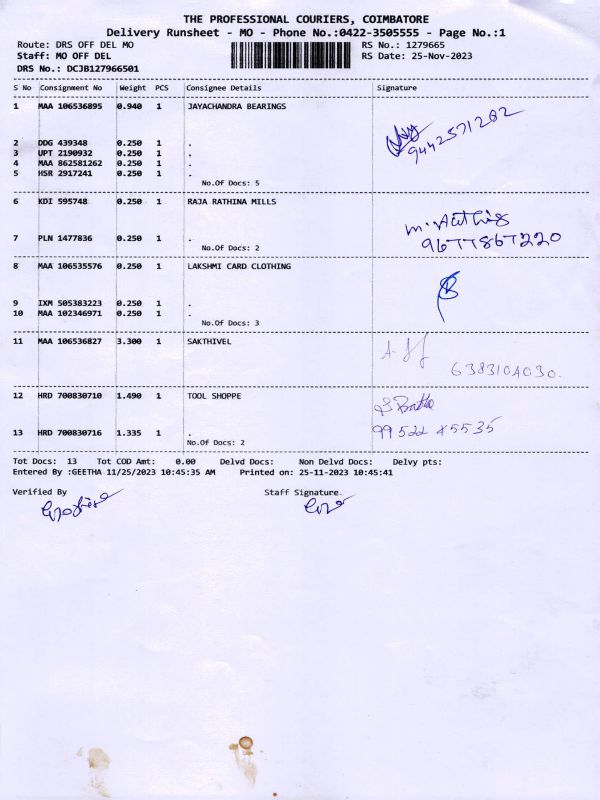 THE PROFESSIONAL COURIERS, COIMBATORE
Delivery Runsheet - MO - Phone No.:0422-3505555 - Page No.:1
Route: DRS OFF DEL MO RS No.: 1279665
Staff: MO OFF DEL RS Date: 25-Nov-2023
DRS No.: DCJB127966501
S No Consignment No Weight PCS Consignee Details Signature
1 MAA 106536895 0.940 1 JAYACHANDRA BEARINGS
9442571282
2 DDG 439348 0.250 1 .
3 UPT 2190932 0.250 1 .
4 MAA 862581262 0.250 1 .
5 HSR 2917241 0.250 1 .
No.Of Docs: 5
6 KDI 595748 0.250 1 RAJA RATHINA MILLS
9677867220
7 PLN 1477836 0.250 1 .
No.Of Docs: 2
8 MAA 106535576 0.250 1 LAKSHMI CARD CLOTHING
9 IXM 505383223 0.250 1 .
10 MAA 102346971 0.250 1 .
No.Of Docs: 3
11 MAA 106536827 3.300 1 SAKTHIVEL
6383104030.
12 HRD 700830710 1.490 1 TOOL SHOPPE
13 HRD 700830716 1.335 1 .
99522 45535
No.Of Docs: 2
Tot Docs: 13 Tot COD Amt: 0.00 Delvd Docs: Non Delvd Docs: Delvy pts:
Entered By :GEETHA 11/25/2023 10:45:35 AM Printed on: 25-11-2023 10:45:41
Verified By Staff Signature